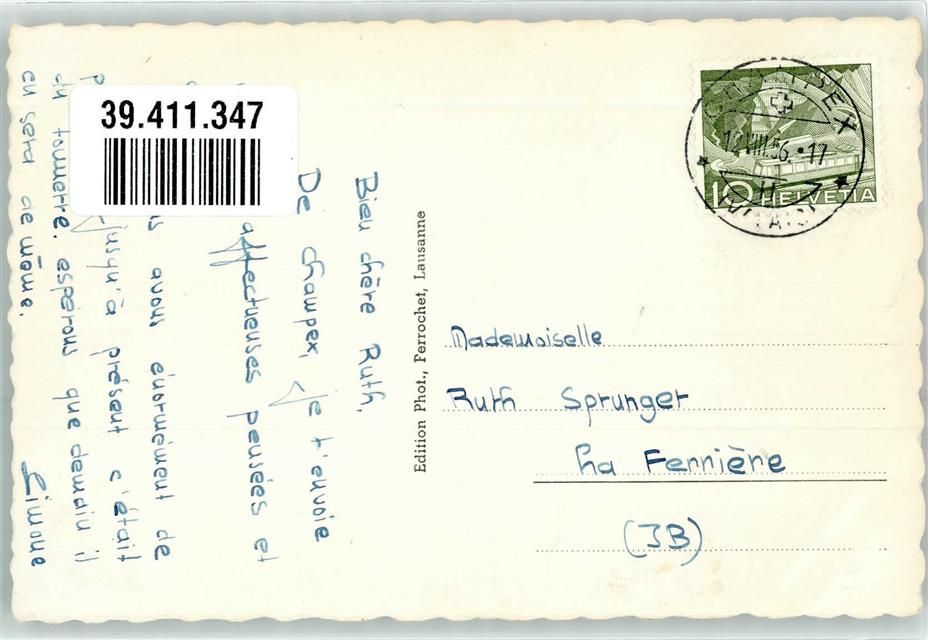 39.411.347
Bien chère Ruth,
De Champex, je t'envoie
affectueuses pensées et
avons énormément de
jusqu'à présent c'était
du tonnerre. espérons que demain il
en sera de même.
Simone
Edition Phot., Perrochet, Lausanne
10 HELVETIA
12.VIII.56.-17
Mademoiselle
Ruth Sprunger
La Ferrière
(JB)